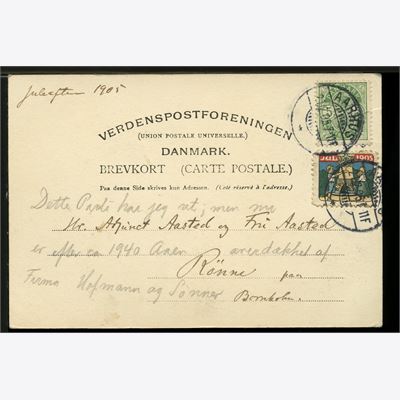 Juleaften 1905
AARHUS
VERDENSPOSTFORENINGEN
(UNION POSTALE UNIVERSELLE.)
JUL 1905
DANMARK.
BREVKORT (CARTE POSTALE.)
Paa denne Side skrives kun Adressen. (Côté réservé à l'adresse.)
Dette Parti har jeg ut; men nu
Hr. Adjunct Aasted og Fru Aasted
er efter ca 1940 Aaen overdækket af
Rönne paa
Firma Hofmann og Sønner
Bornholm.